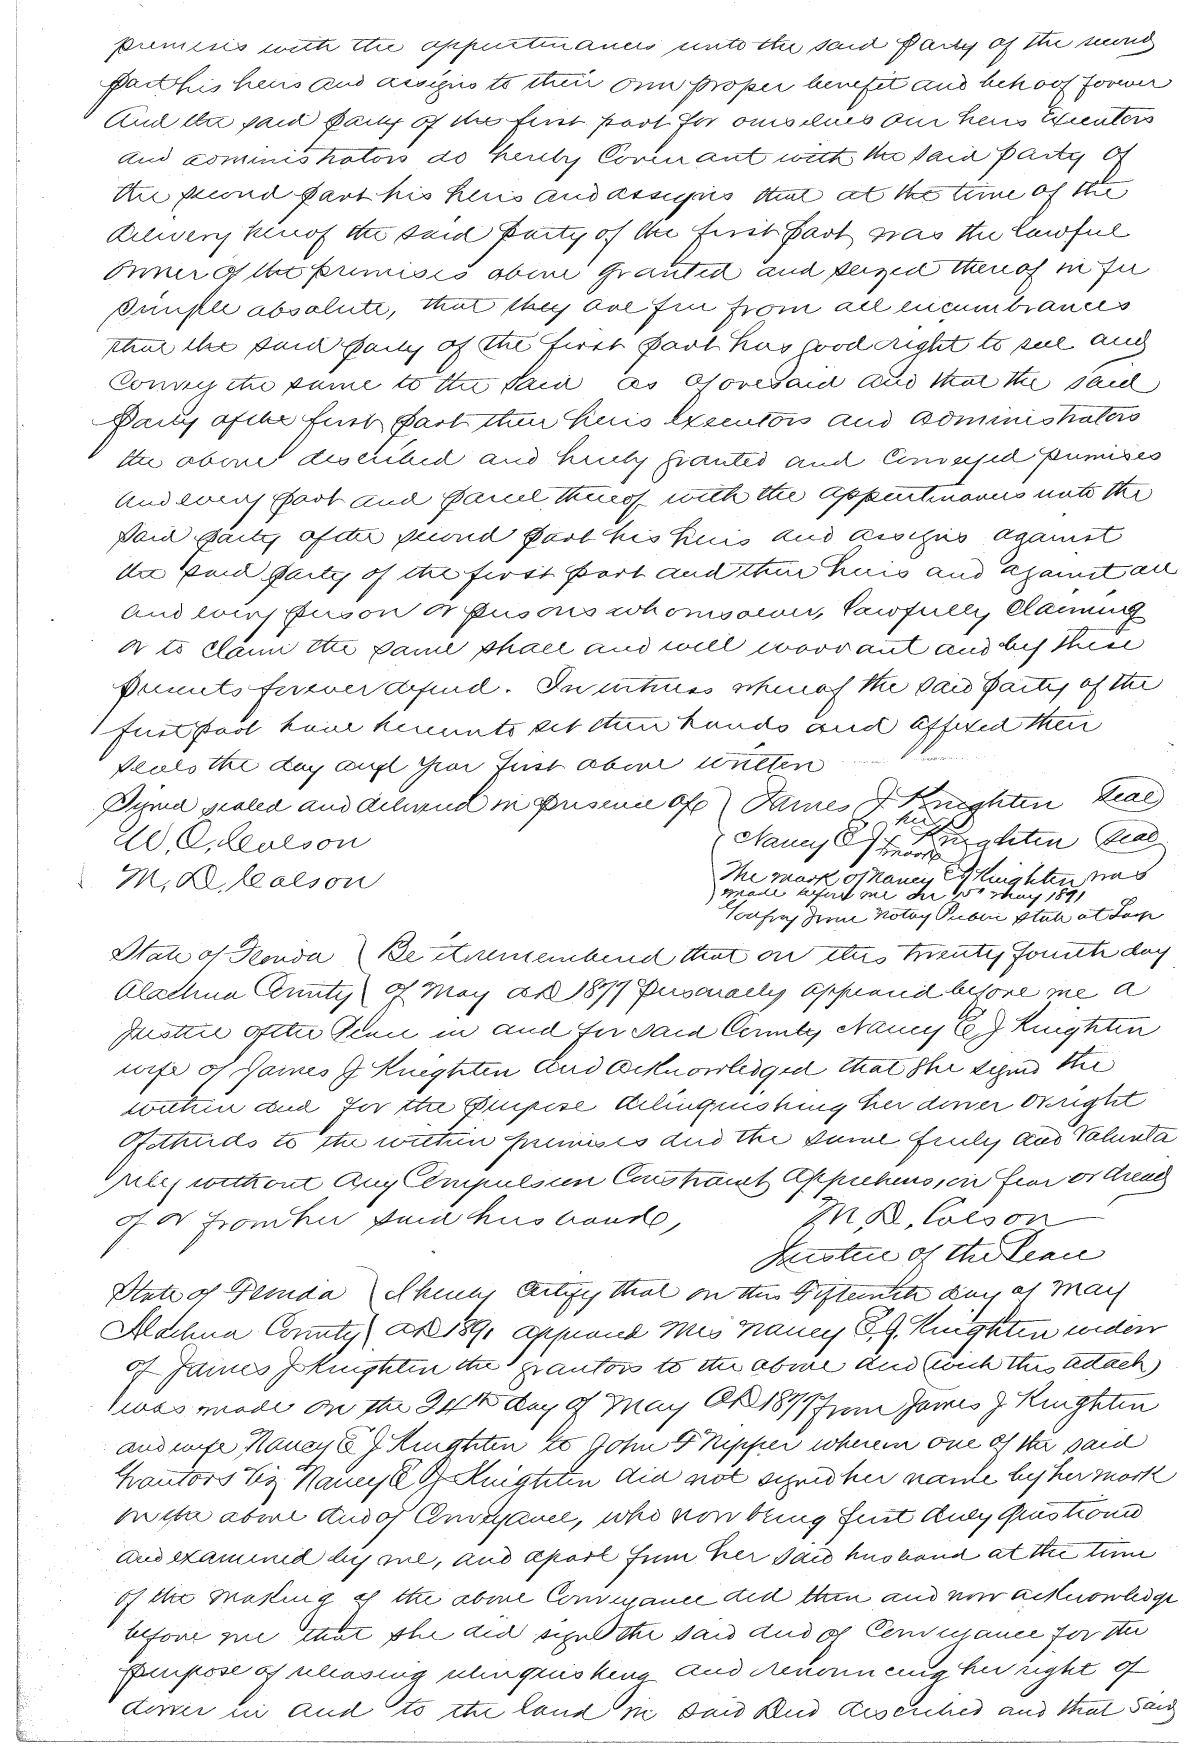 premises with the appurtenances unto the said Party of the second
part his heirs and assigns to their own proper benefit and behoof forever
And the said Party of the first part for ourselves our heirs Executors
and administrators do hereby Covenant with the said party of
the second part his heirs and assigns that at the time of the
delivery hereof the said Party of the first part was the lawful
owner of the premises above granted and seized thereof in fee
simple absolute, that they are free from all encumbrances
that the said Party of the first part has good right to sell and
Convey the same to the said as aforesaid and that the said
Party of the first part their heirs executors and administrators
the above described and hereby granted and Conveyed premises
and every part and parcel thereof with the appurtenances unto the
said party of the second part his heirs and assigns against
the said Party of the first part and their heirs and against all
and every person or persons whomsoever, lawfully claiming
or to claim the same shall and will warrant and by these
presents forever defend. In witness whereof the said Party of the
first part have hereunto set their hands and affixed their
seals the day and year first above written
Signed sealed and delivered in presence of James J Knighten Seal
W. C. Colson Nancy E J her x mark Knighten Seal
M. D. Colson The mark of Nancy E J Knighten was
made before me the 15th May 1891
Notary Public State at Large
State of Florida Be it remembered that on this twenty fourth day
Alachua County of May AD 1877 Personally appeared before me a
Justice of the Peace in and for said County Nancy E J Knighten
wife of James J Knighten and acknowledged that she signed the
within deed for the purpose delinquishing her dower or right
of thirds to the within premises and the same freely and volunta
rily without any Compulsion Constraint Apprehension fear or dread
of or from her said husband, M. D. Colson
Justice of the Peace
State of Florida I hereby certify that on this Fifteenth day of May
Alachua County AD 1891 appeared Mrs Nancy E. J. Knighten widow
of James J Knighten the grantors to the above deed (which this attach)
was made on the 24th day of May AD 1877 from James J Knighten
and wife Nancy E J Knighten to John F Nipper wherein one of the said
Grantors viz Nancy E J Knighten did not signed her name by her mark
on the above deed of Conveyance, who now being first duly questioned
and examined by me, and apart from her said husband at the time
of the making of the above Conveyance did then and now acknowledge
before me that she did sign the said deed of Conveyance for the
purpose of releasing relinquishing and renouncing her right of
dower in and to the land in said Deed described and that said